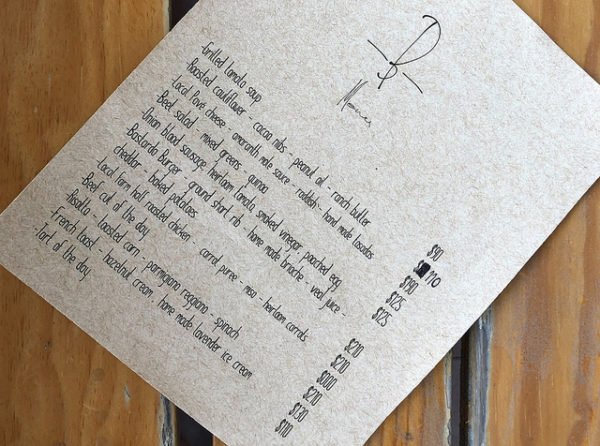 -Grilled tomato soup $90
-Roasted cauliflower - cacao nibs - peanut oil - ranch butter 110
-Local Pavé cheese - amaranth mole sauce - radish - hand made tosadas $190
-Beet salad - mixed greens - quinoa $125
-Onion blood sausage, heirloom tomato, smoked vinegar, poached egg $125
-Bastardo Burger - ground short rib - home made brioche - veal juice -
cheddar - baked potatoes $210
-Local farm half roasted chicken - carrot puree - miso - heirloom carrots $210
-Beef cut of the day $000
-Risotto - toasted corn - parmigiano reggiano - spinach $210
-French toast - hazelnut cream - home made lavender ice cream $130
-Tart of the day $110